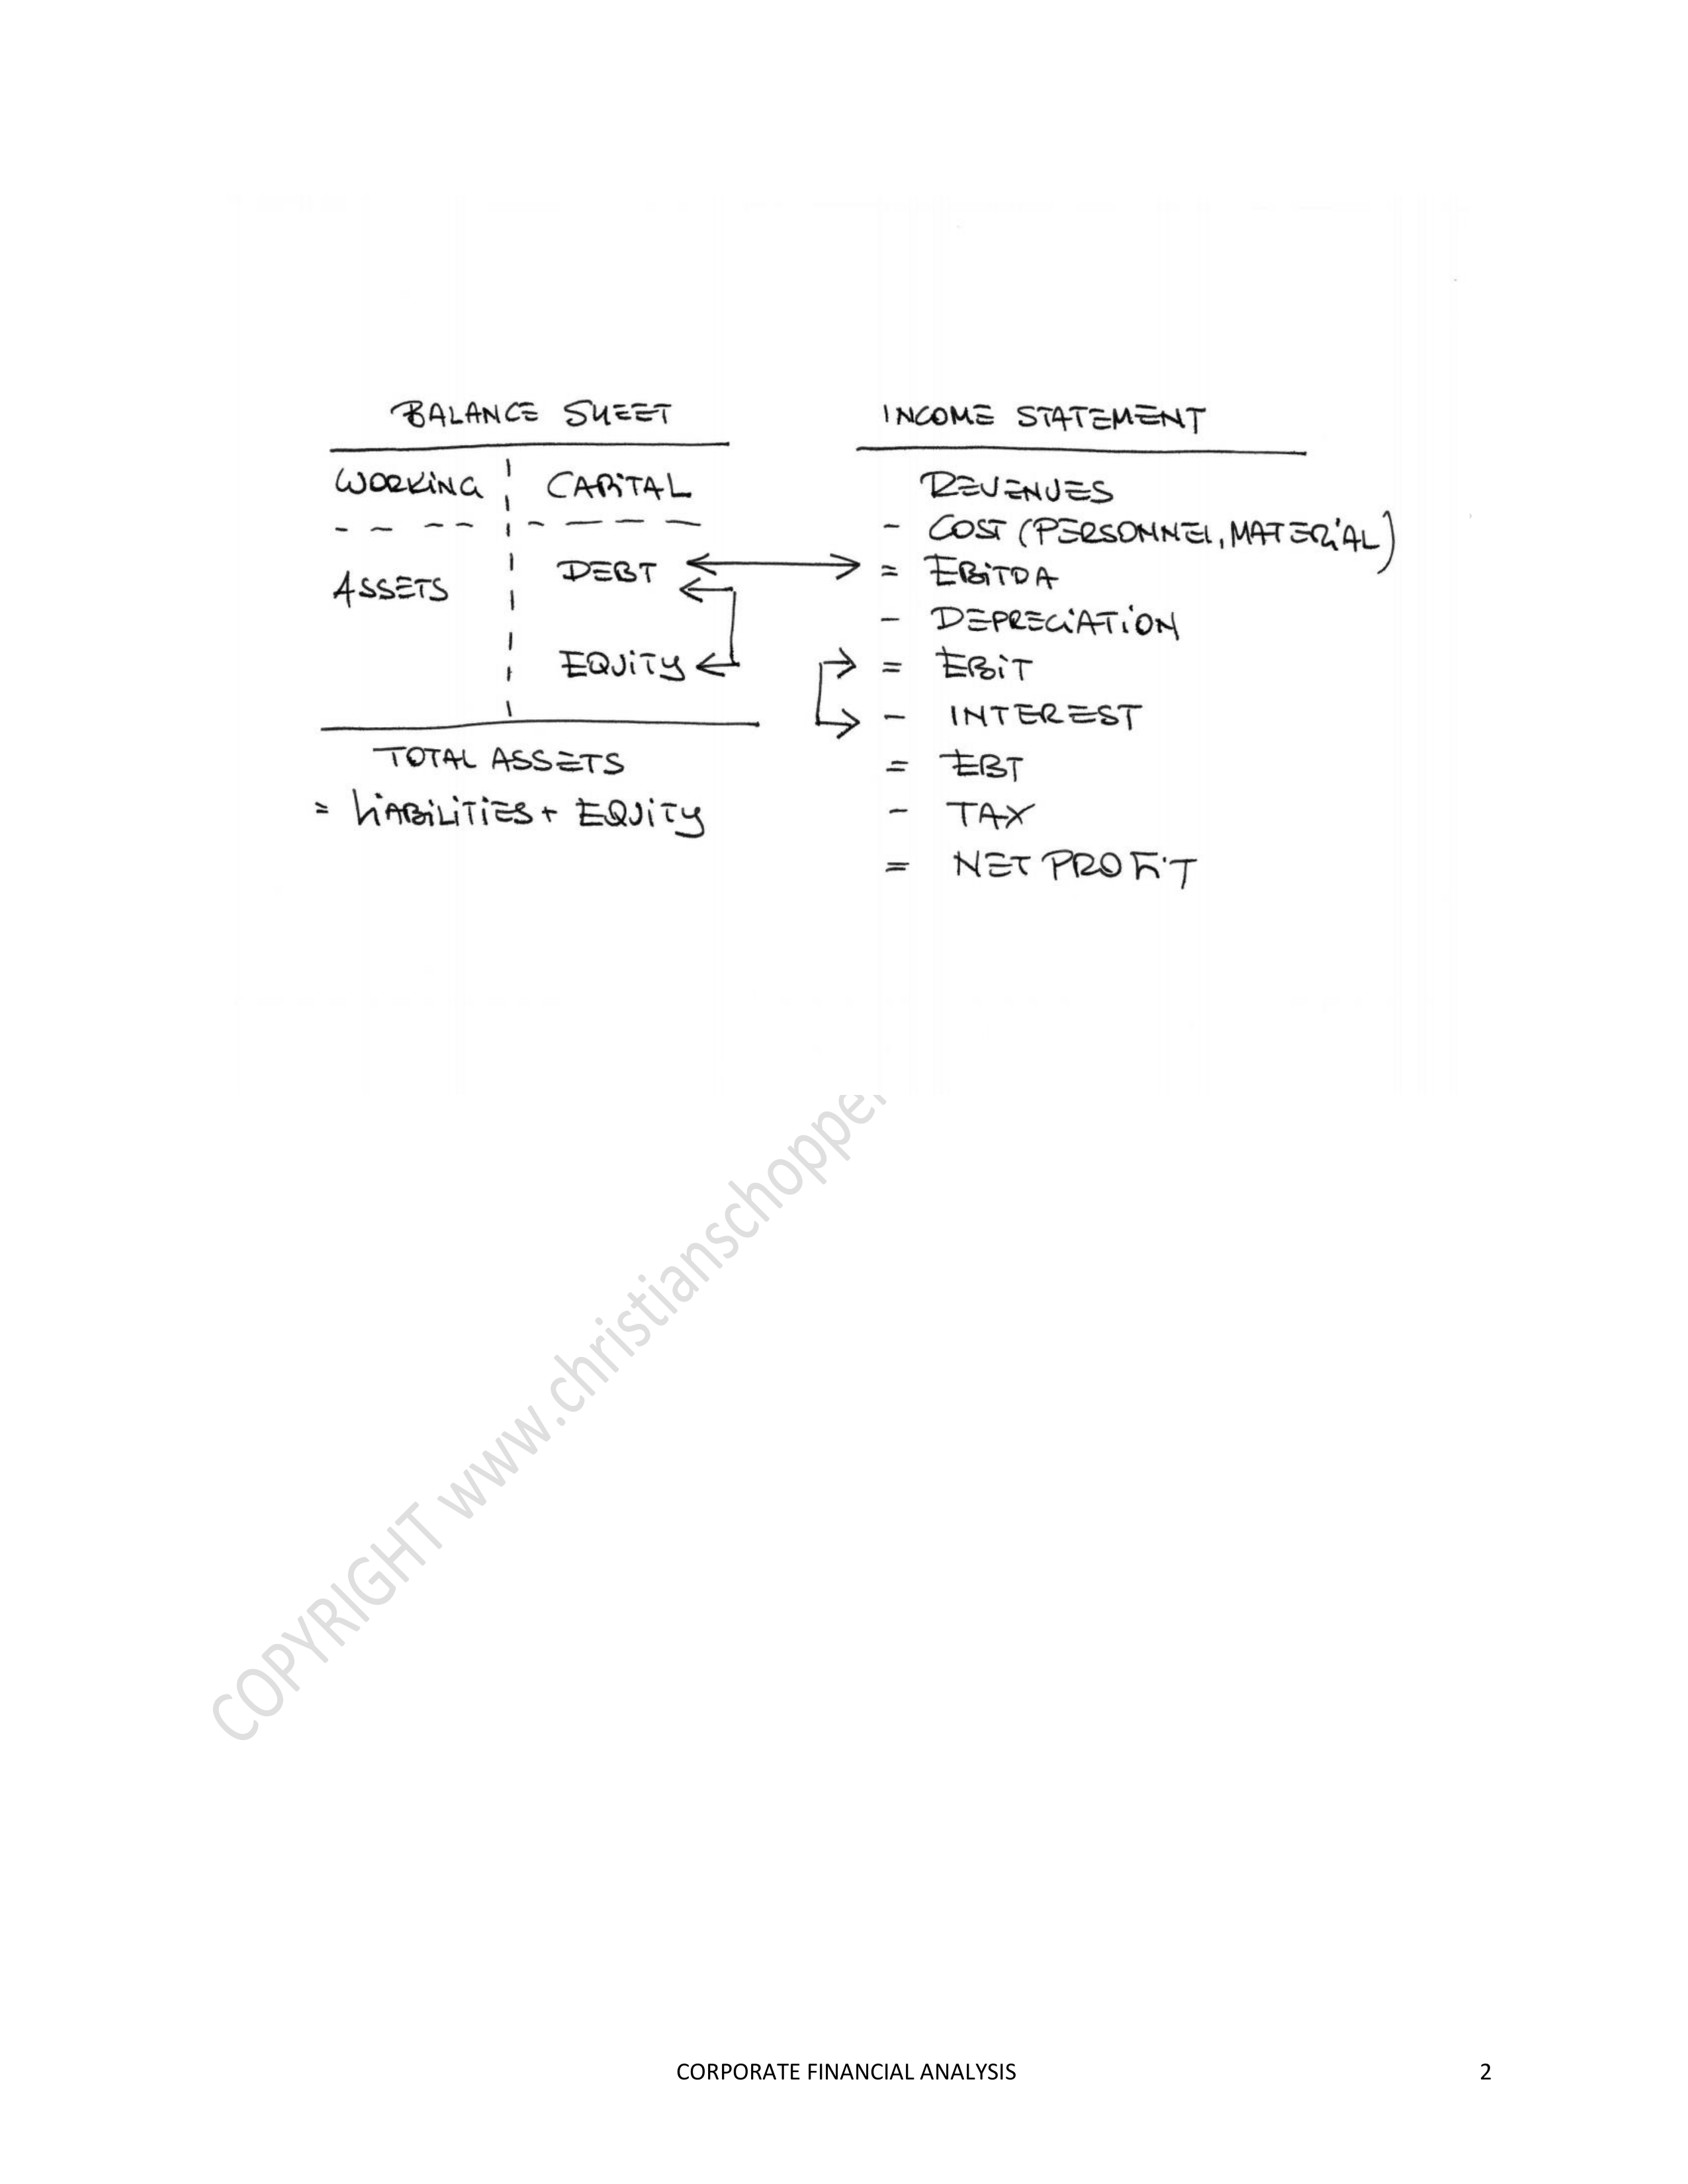 BALANCE SHEET
WORKING CAPITAL
ASSETS
DEBT
EQUITY
TOTAL ASSETS
= LIABILITIES + EQUITY
INCOME STATEMENT
REVENUES
- COST (PERSONNEL, MATERIAL)
= EBITDA
- DEPRECIATION
= EBIT
- INTEREST
= EBT
- TAX
= NET PROFIT
COPYRIGHT www.christianschopper
CORPORATE FINANCIAL ANALYSIS 2